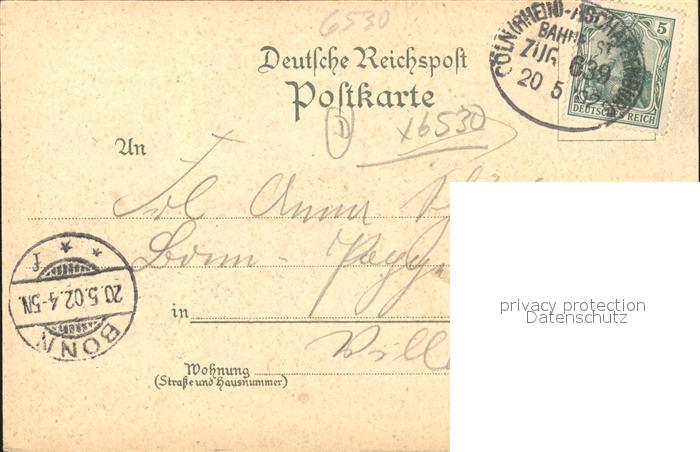 6530
Deutsche Reichspost
Postkarte
CÖLN(RHEIN)-ASCHAFFENBURG
BAHNPOST
ZUG 639
20 5 02
5
DEUTSCHES REICH
D
x6530
An
Frl Anna
Bonn - Popp
in
Villa
Wohnung
(Straße und Hausnummer)
BONN
20.5.02.4-5N.
* * f
privacy protection
Datenschutz